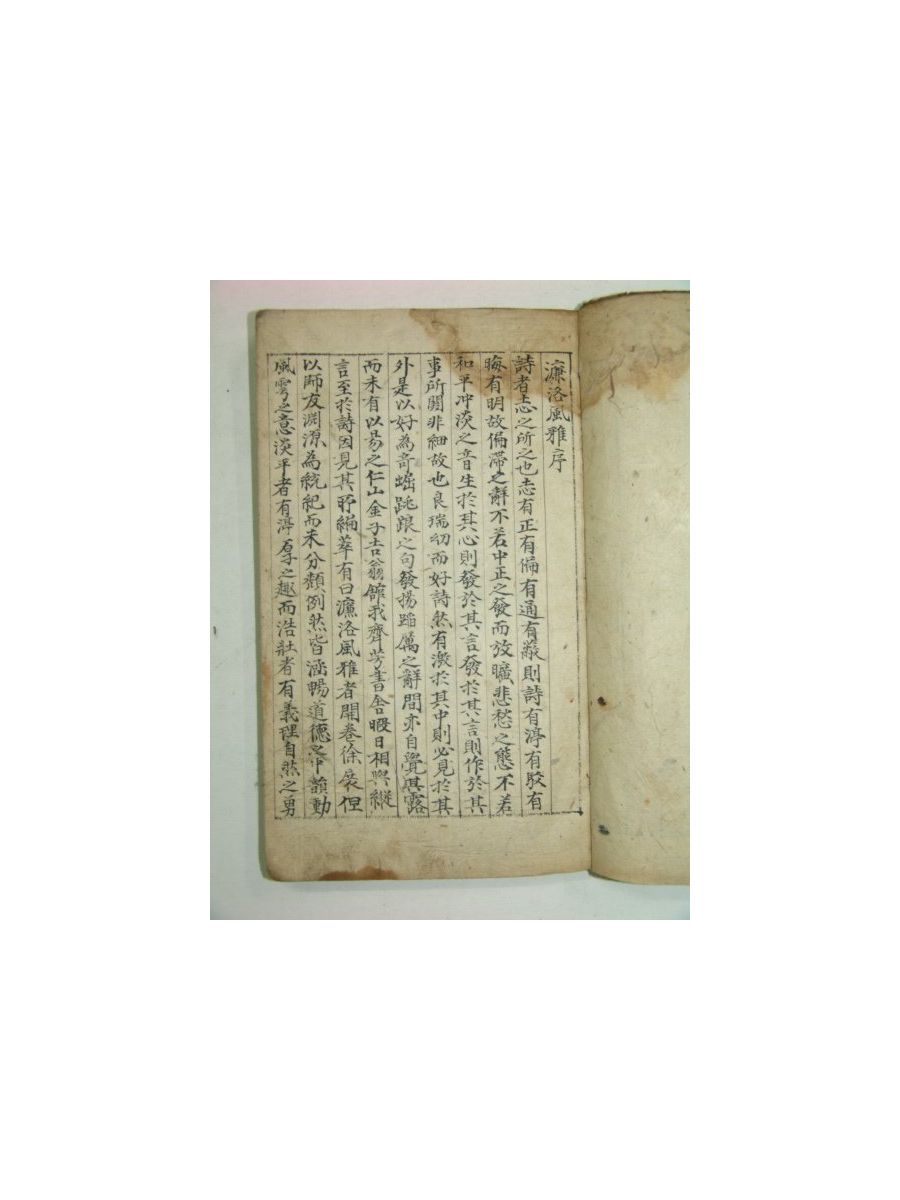 濂洛風雅序
詩者志之所之也志有正有偏有通有蔽則詩有淳有駁有
晦有明故偏滯之辭不若中正之發而放曠悲愁之態不若
和平冲淡之音生於其心則發於其言發於其言則作於其
事所關非細故也良瑞幼而好詩然有激於其中則必見於其
外是以好為奇崛跳踉之句發揚蹈厲之辭間亦自覺其露
而未有以易之仁山金子吉翁館我齊芳書舍暇日相與縱
言至於詩因見其所編萃有曰濂洛風雅者開卷徐展但
以師友淵源為統紀而未分類例然皆涵暢道德之中韻動
風雩之意淡平者有淳厚之趣而浩壯者有義理自然之勇